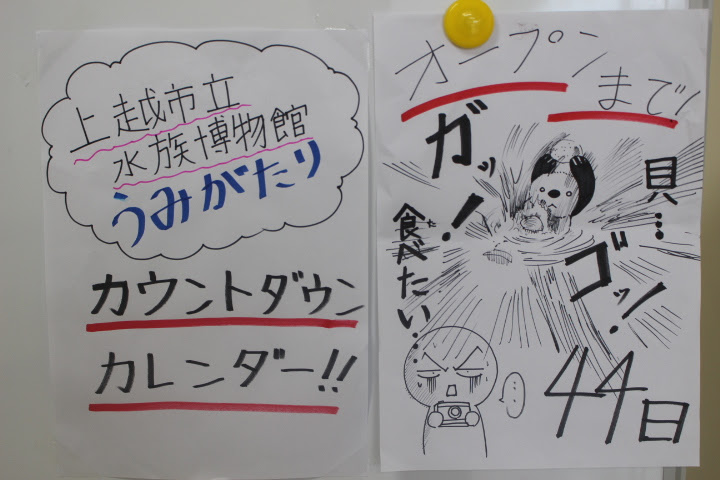 上越市立
水族博物館
うみがたり
カウントダウン
カレンダー!!
オープン
まで!
ガッ!
貝…
ゴッ!
食べたい…
…
44日